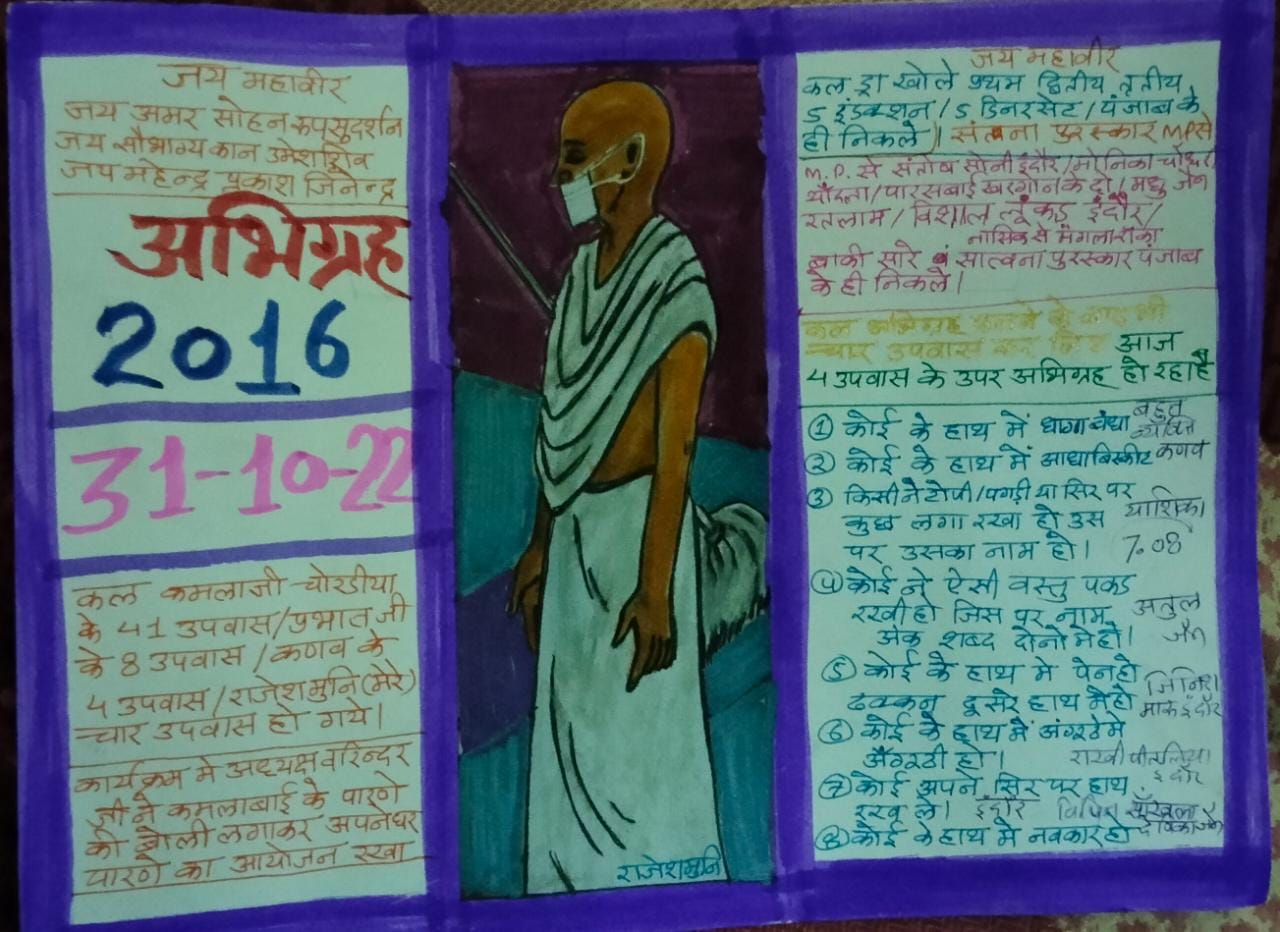 जय महावीर
जय अमर सोहन रुपसुदर्शन
जय सौभाग्य कान उमेश शिव
जय महेन्द्र प्रकाश जिनेन्द्र
अभिग्रह
2016
31-10-22
कल कमलाजी चोरडीया
के 41 उपवास/प्रभात जी
के 8 उपवास/कणव के
4 उपवास/राजेशमुनि (मेरे)
चार उपवास हो गये।
कार्यक्रम मे अध्यक्ष वरिन्दर
जी ने कमलाबाई के पारणे
की बोली लगाकर अपने घर
पारणे का आयोजन रखा
राजेशमुनि
जय महावीर
कल ड्रा खोले प्रथम द्वितीय तृतीय
5 इंडक्शन/5 डिनरसेट/पंजाब के
ही निकले। सांत्वना पुरस्कार MP से
M.P. से संतोष सोनी इंदौर/मोनिका
पारसबाई खरगोन के दो/मधु जैन
रतलाम/विशाल इंदौर/
नासिक से मंगला
बाकी सारे सात्वना पुरस्कार पंजाब
के ही निकले।
कल अभिग्रह के बाद भी
चार उपवास कर आज
4 उपवास के उपर अभिग्रह हो रहा है
① कोई के हाथ में धागा बंधा बहुत व्यक्ति
② कोई के हाथ में आधा बिस्कीट कणव
③ किसी ने टोपी/पगड़ी या सिर पर
कुछ लगा रखा हो उस याशिका
पर उसका नाम हो। 7.08
④ कोई ने ऐसी वस्तु पकड
रखी हो जिस पर नाम अतुल
अंक शब्द दोनो मे हो। जैन
⑤ कोई के हाथ मे पेन हो
ढक्कन दूसरे हाथ मे हो जिनिशा मारू इंदौर
⑥ कोई के हाथ में अंगूठे मे
अँगूठी हो। राखी पीतलिया इंदौर
⑦ कोई अपने सिर पर हाथ
रख ले। इंदौर विपिन साँखला
⑧ कोई के हाथ में नवकार हो